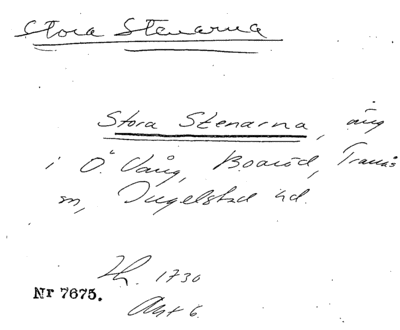 Stora Stenarna
Stora Stenarna, äng
i Ö. Vång, Boaröd, Tranås
sn, Ingelstad hd.
Lh. 1730
Akt 6.
Nr 7675.